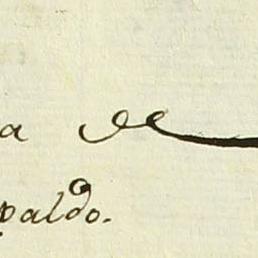 a de
paldo.